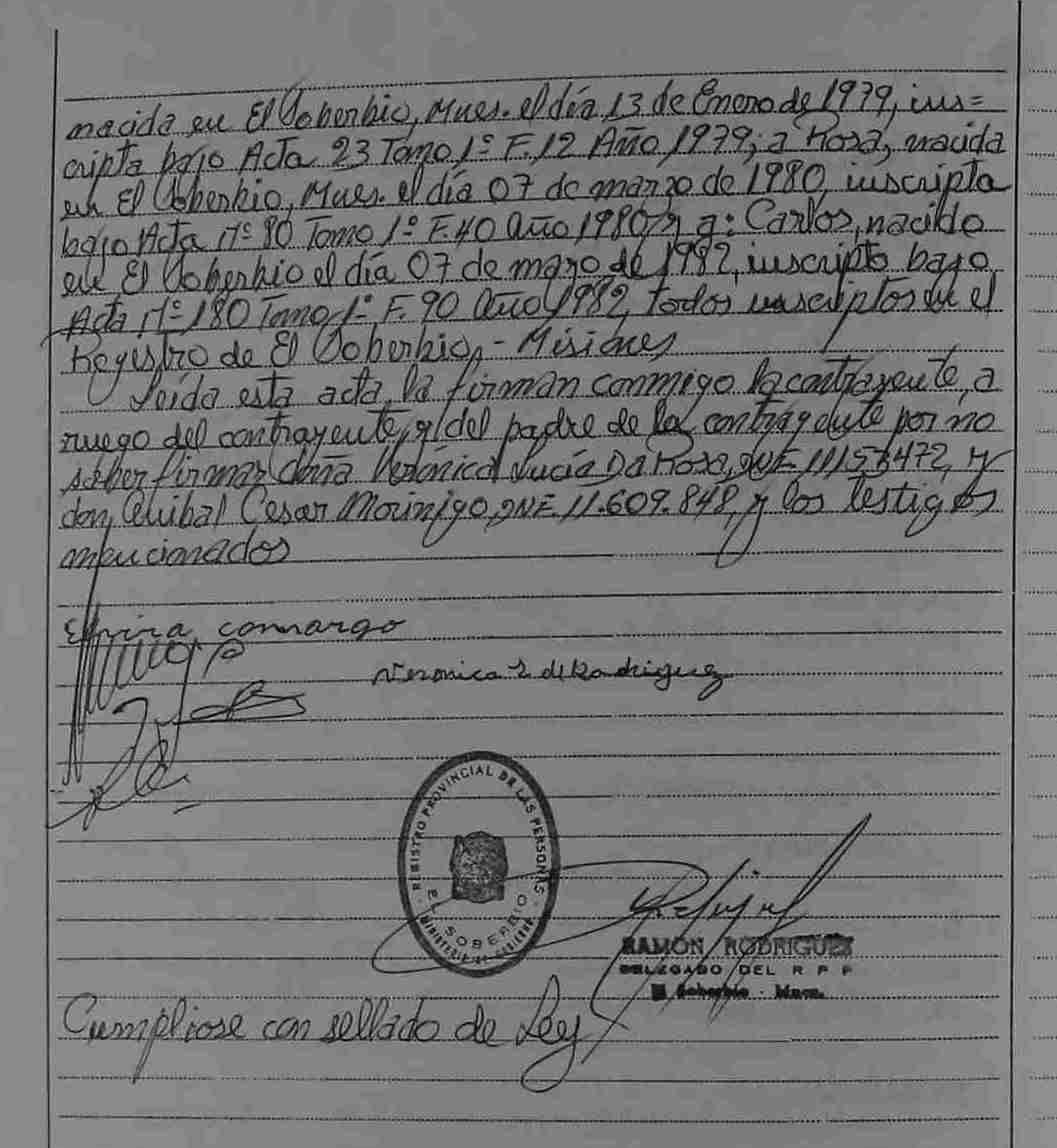 nacida en El Soberbio, Mnes. el día 13 de Enero de 1979, ins=
cripta bajo Acta 23 Tomo 1º F. 12 Año 1979; a Rosa, nacida
en El Soberbio, Mnes. el día 07 de marzo de 1980, inscripta
bajo Acta nº 80 Tomo 1º F. 40 Año 1980 y a: Carlos, nacido
en El Soberbio el día 07 de mazo de 1982, inscripto bajo
Acta nº 180 Tomo 1º F. 90 Año 1982, todos inscriptos en el
Registro de El Soberbio, - Misiones
Leída esta acta, la firman conmigo la contrayente, a
ruego del contrayente, y del padre de la contrayente por no
saber firmar doña Verónica Lucía Da Rosa, DNI 11153472, y
don, Anibal Cesar Morinigo, DNI 11.609.848, y los testigos
mencionados
Elvira camargo
Veronica L de Rodriguez
REGISTRO PROVINCIAL DE LAS PERSONAS
EL SOBERBIO
MINISTERIO DE GOBIERNO
RAMON RODRIGUEZ
DELEGADO DEL R P P
El Soberbio - Mnes.
Cumpliose con sellado de Ley